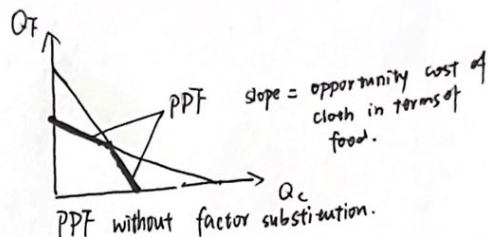 QF
PPF
slope = opportunity cost of
cloth in terms of
food.
Qc
PPF without factor substitution.